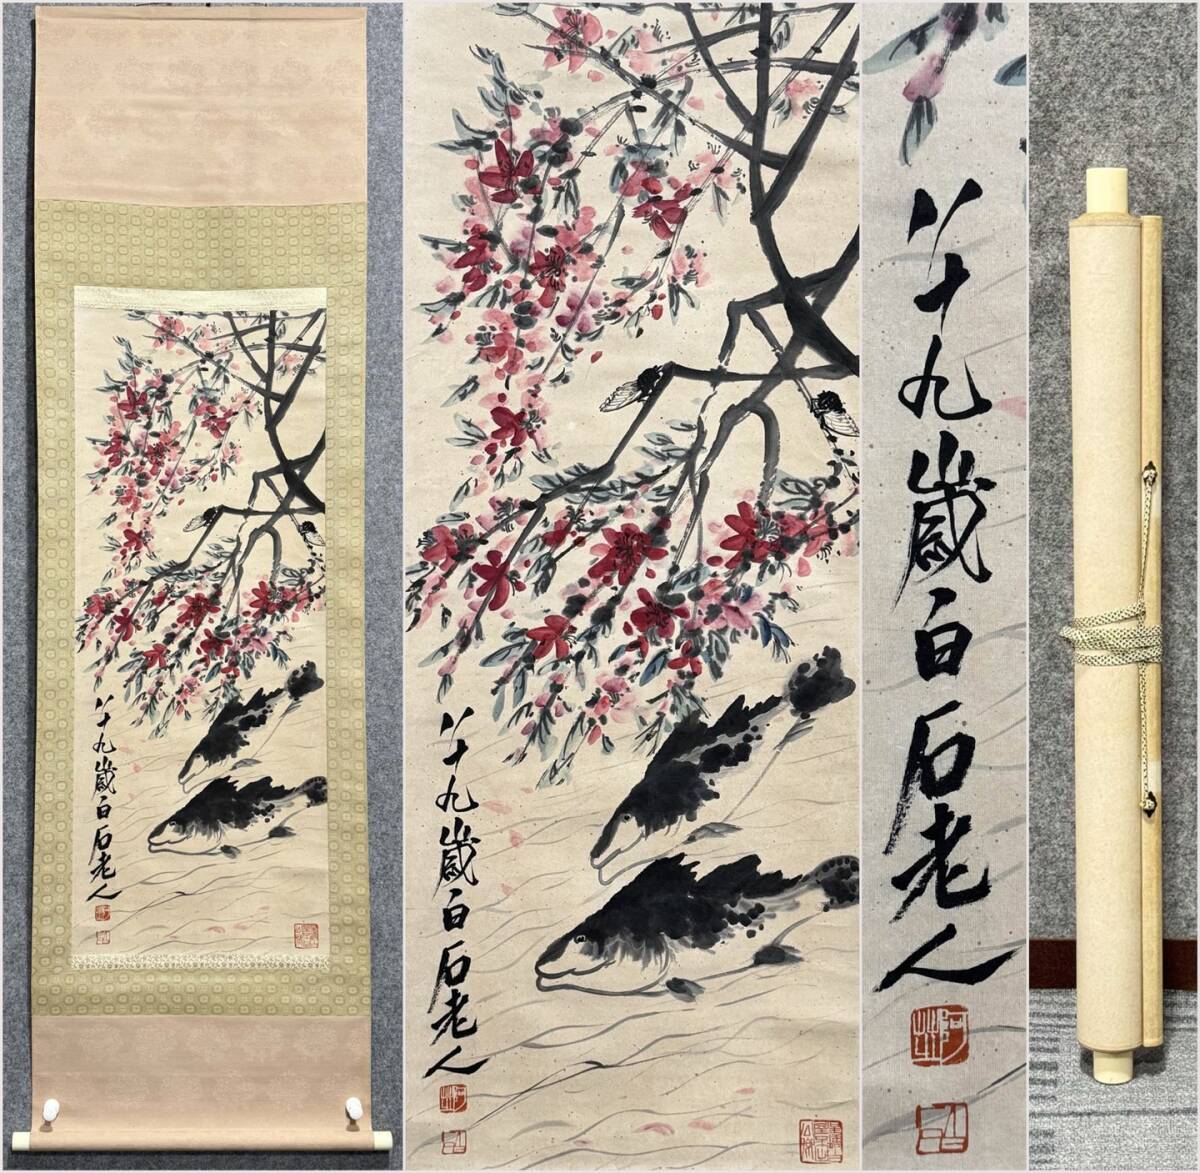 八十九歲白石老人
八十九歲白石老人
八十九歲白石老人